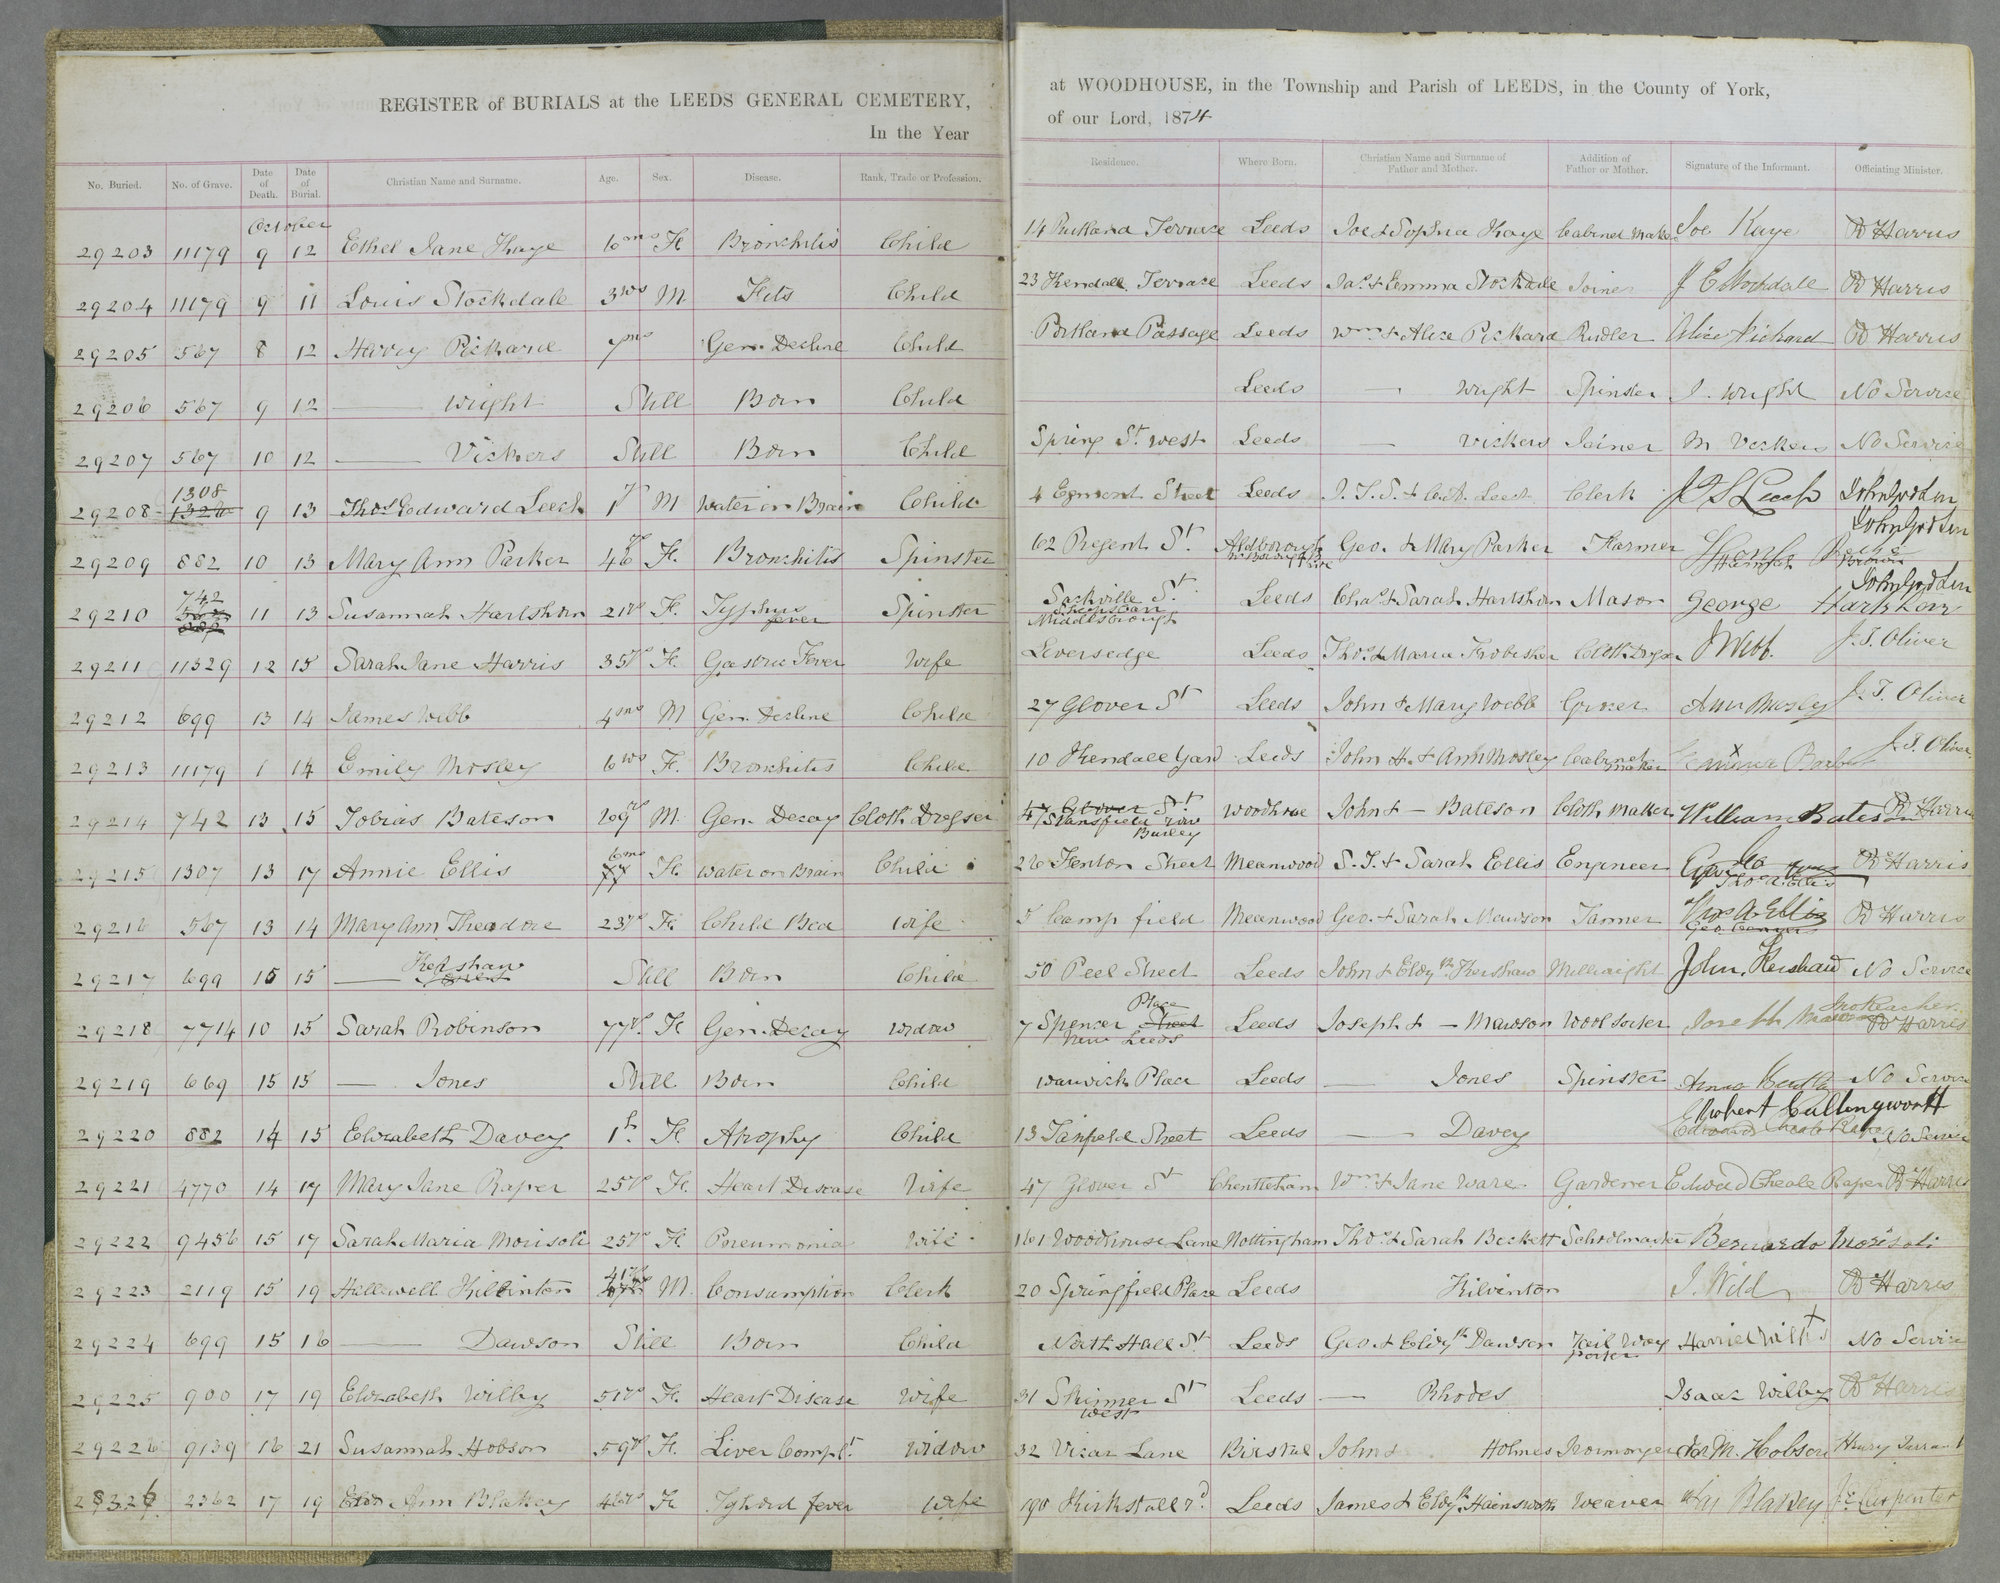 REGISTER of BURIALS at the LEEDS GENERAL CEMETERY,
In the Year
at WOODHOUSE, in the Township and Parish of LEEDS, in the County of York,
of our Lord, 1874
No. Buried. No. of Grave. Date of Death. Date of Burial. Christian Name and Surname. Age. Sex. Disease. Rank, Trade or Profession. Residence. Where Born. Christian Name and Surname of Father and Mother. Addition of Father or Mother. Signature of the Informant. Officiating Minister.
October
29203 11179 9 12 Ethel Jane Kaye 6ms F. Bronchitis Child 14 Terrace Leeds Joe & Sophia Kaye Cabinet Maker Joe Kaye R Harris
29204 11179 9 11 Louis Stockdale 3ws M Fits Child 23 Kendall Terrace Leeds Jas. & Emma Stockdale Joiner J E Stockdale R Harris
29205 567 8 12 Harry Pickard 7ms Gen. Decline Child Portland Passage Leeds Wm. & Alice Pickard Alice Pickard R Harris
29206 567 9 12 — Wright Still Born Child Leeds — Wright Spinster J. Wright No Service
29207 567 10 12 — Vickers Still Born Child Spring St. West Leeds — Vickers Joiner M Vickers No Service
29208 1308 1326 9 13 Thos. Edward Leech 1 M Water on Brain Child 4 Egmont Street Leeds J. T. S. & C. A. Leech Clerk J T S Leech John Gordon
29209 882 10 13 Mary Ann Parker 46 F. Bronchitis Spinster 62 Regent St. Aldborough Nr Boroughbridge Geo. & Mary Parker Farmer Hannah Brown John Gordon
29210 742 11 13 Susannah Hartshorn 21ys F. Typhus fever Spinster Sackville St. Middlesborough Leeds Chas. & Sarah Hartshorn Mason George Hartshorn John Gordon
29211 11329 12 15 Sarah Jane Harris 35ys F. Gastric Fever Wife Liversedge Leeds Thos. & Maria Frobisher Cloth Dresser J Webb. J. T. Oliver
29212 699 13 14 James Webb 4ms M Gen. Decline Child 27 Glover St Leeds John & Mary Webb Grocer Ann Mosley J. T. Oliver
29213 11179 1 14 Emily Mosley 6ws F. Bronchitis Child 10 Kendall Yard Leeds John H. & Ann Mosley Cabinet maker J. T. Oliver
29214 742 13 15 Tobias Bateson 69 M. Gen. Decay Cloth Dresser 47 Glover St. Stansfield row Burley Woodhouse John & — Bateson Cloth Maker William Bateson R Harris
29215 1307 13 17 Annie Ellis 6ms F. Water on Brain Child 26 Fenton Street Meanwood S. T. & Sarah Ellis Engineer Thos A Ellis R Harris
29216 567 13 14 Mary Ann Theadore 23ys F. Child Bed Wife 5 Camp field Meanwood Geo. & Sarah Mawson Tanner Thos A Ellis R Harris
29217 699 15 15 — Kershaw Still Born Child 50 Peel Street Leeds John & Elizth. Kershaw Millwright John Kershaw No Service
29218 7714 10 15 Sarah Robinson 77ys. F. Gen. Decay Widow 7 Spencer Street Place New Leeds Leeds Joseph & — Mawson Wool Sorter Joseph Mawson R Harris
29219 669 15 15 — Jones Still Born Child Warwick Place Leeds — Jones Spinster No Service
29220 882 14 15 Elizabeth Davey 1h. F. Atrophy Child 13 Tanfield Street Leeds — Davey Robert Cullingworth No Service
29221 4770 14 17 Mary Jane Raper 25ys F. Heart Disease Wife 47 Glover St Cheltenham Wm. & Jane Ware Gardener Edward Cheale Raper R Harris
29222 9456 15 17 Sarah Maria Morisoli 25ys F. Pneumonia Wife 161 Woodhouse Lane Nottingham Thos. & Sarah Beckett Schoolmaster Bernardo Morisoli
29223 2119 15 19 Hallewell Kilvinton 41 M. Consumption Clerk 20 Springfield Place Leeds Kilvinton J. Wild R Harris
29224 699 15 16 — Dawson Still Born Child North Hall St Leeds Geo. & Elizth Dawson Rail Way porter No Service
29225 900 17 19 Elizabeth Wilby 51ys F. Heart Disease Wife 31 Skinner St West Leeds — Rhodes Isaac Wilby R Harris
29226 9139 16 21 Susannah Hobson 59ys F. Liver Complt. Widow 32 Vicar Lane Birstal John & Holmes Ironmonger M. Hobson Henry
2362 17 19 Ann Blakey 46ys F. Typhoid fever Wife 190 Kirkstall rd Leeds James & Elizth. Hainsworth Weaver Wm Blakey J. Carpenter